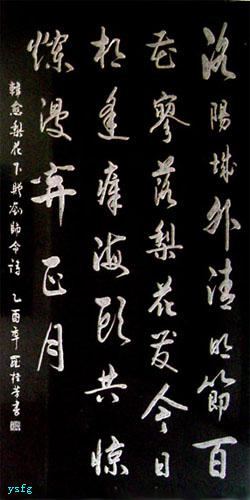 洛陽城外清明節百
花寥落梨花发今日
相逢瘴海頭共惊
爛漫开正月
韓愈梨花下贈劉師命詩 乙酉年 羅桂芳書
ysfg